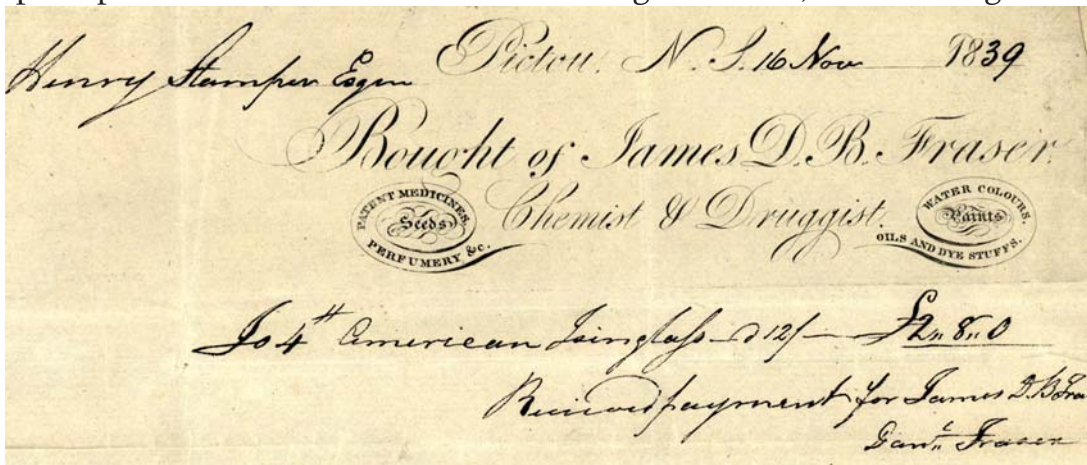 Henry Stamper Esqr
Pictou, N. S. 16 Nov 1839
Bought of James D. B. Fraser.
Chemist & Druggist.
PATENT MEDICINES.
Seeds
PERFUMERY &c.
WATER COLOURS.
Paints
OILS AND DYE STUFFS.
To 4 lb American Isinglass @ 12/ £2,, 8,, 0
Received payment for James D. B Fra
Fraser